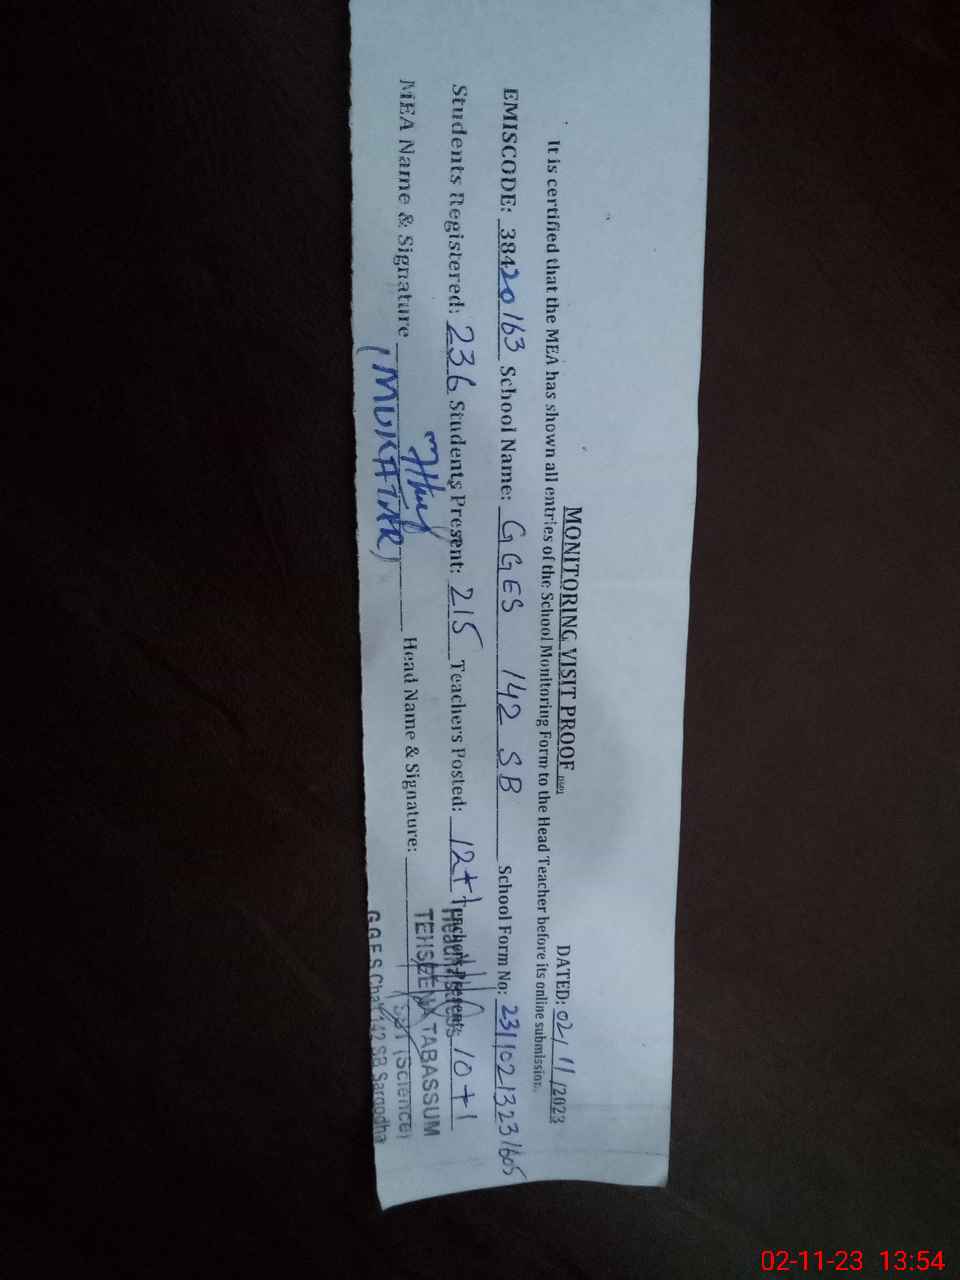 MONITORING VISIT PROOF
DATED: 02/11/2023
It is certified that the MEA has shown all entries of the School Monitoring Form to the Head Teacher before its online submission.
EMISCODE: 38420163 School Name: GGES 142 SB School Form No: 23110213231605
Students Registered: 236 Students Present: 215 Teachers Posted: 12+1 Teachers Present: 10+1
MEA Name & Signature (MUKHTAR) Head Name & Signature:
Headmistress
TEHSEENA TABASSUM
(Science)
G.G.E.S Chak 142 SB Sargodha
02-11-23 13:54